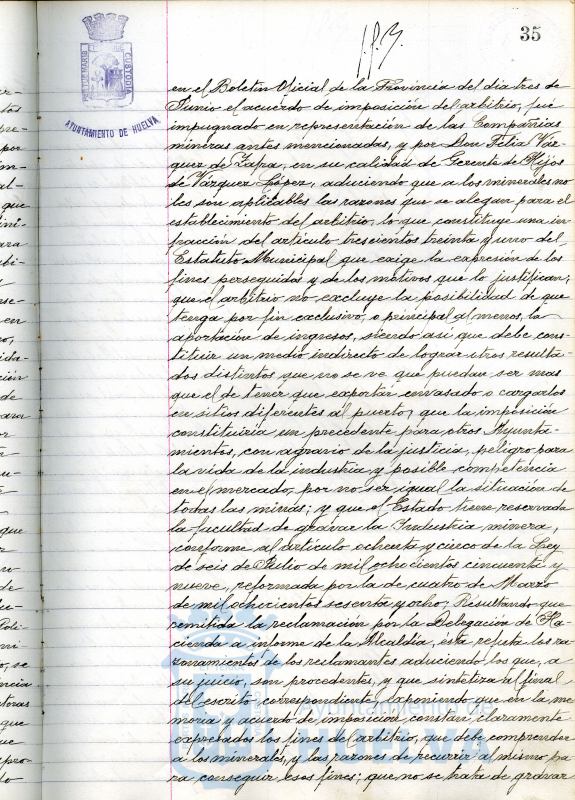 35
PORTUS MARIS
CUSTODIA
AYUNTAMIENTO DE HUELVA
en el Boletin Oficial de la Provincia del dia tres de
Junio el acuerdo de imposición del arbitrio, fué
impugnado en representación de las Compañias
mineras antes mencionadas, y por Don Felix Váz-
quez de Zafra, en su calidad de Gerente de Hijos
de Vázquez López, aduciendo que a los minerales no
les son aplicables las razones que se alegan para el
establecimiento del arbitrio, lo que constituye una in-
fracción del articulo trescientos treinta y uno del
Estatuto Municipal que exige la expresión de los
fines perseguidos y de los motivos que lo justifican;
que el arbitrio no excluye la posibilidad de que
tenga por fin exclusivo, o principal al menos, la
aportación de ingresos, siendo asi que debe cons-
tituir un medio indirecto de lograr otros resulta-
dos distintos que no se ve que puedan ser mas
que el de tener que exportar envasado o cargarlos
en sitios diferentes al puerto; que la imposición
constituiria un precedente para otros Ayunta-
mientos, con agravio de la justicia, peligro para
la vida de la industria y posible competencia
en el mercado, por no ser igual la situación de
todas las minas; y que el Estado tiene reservada
la facultad de gravar la Industria minera,
conforme al articulo ochenta y cinco de la Ley
de seis de Julio de mil ochocientos cincuenta y
nueve, reformada por la de cuatro de Marzo
de mil ochocientos sesenta y ocho; Resultando que
remitida la reclamación por la Delegación de Ha-
cienda a informe de la Alcaldia, esta refuta los ra-
zonamientos de los reclamantes aduciendo los que, a
su juicio, son procedentes, y que sintetiza al final
del escrito correspondiente exponiendo que en la me-
moria y acuerdo de imposición, constan claramente
expresados los fines del arbitrio, que debe comprender
a los minerales, y las razones de recurrir al mismo pa-
ra conseguir esos fines; que no se trata de gravar
Ayuntamiento de
HUELVA